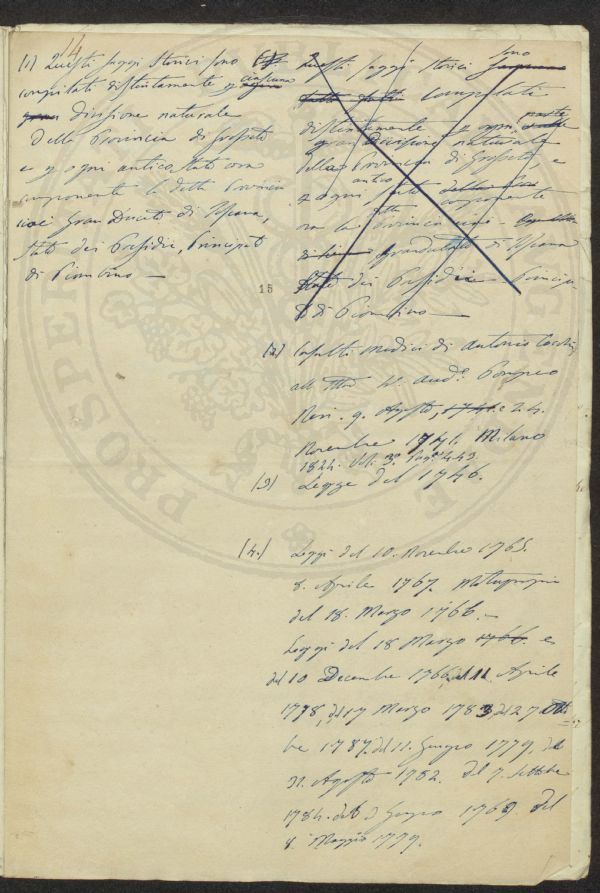 14
(1) Questi saggi Storici sono
compilati distintamente p ciascuna
gran divisione naturale
della Provincia di Grosseto
e p ogni antico Stato ora
componente la detta Provincia
cioè Gran Ducato di Toscana,
Stato dei Presidii, Principato
di Piombino —
Questi saggi storici sono
compilati
distintamente p ogni parte
gran divisione naturale
della Provincia di Grosseto, e
p ogni antico Stato componente
ora la detta provincia
Granducato di Toscana
Stato dei Presidii Principa-
to di Piombino —
15
(2) Consulti Medici di Antonio Cocchi
all' Ill. Aud. Pompeo
Neri. 9. Agosto, 1741. e 24.
Novembre 1741. Milano
1824. Vol. 3. pag. 449.
(3) Legge del 1746.
(4.) Leggi del 10. Novembre 1765.
8. Aprile 1767. Motuproprio
del 18. Marzo 1766. —
Leggi del 18 Marzo 1766. e
del 10 Decembre 1766. del 11. Aprile
1778, del 17 Marzo 1783 del 27 Otto-
bre 1787. del 11. Giugno 1779. del
31. Agosto 1782. del 7. Settembre
1784. del 3 Giugno 1769. del
8. Maggio 1779.